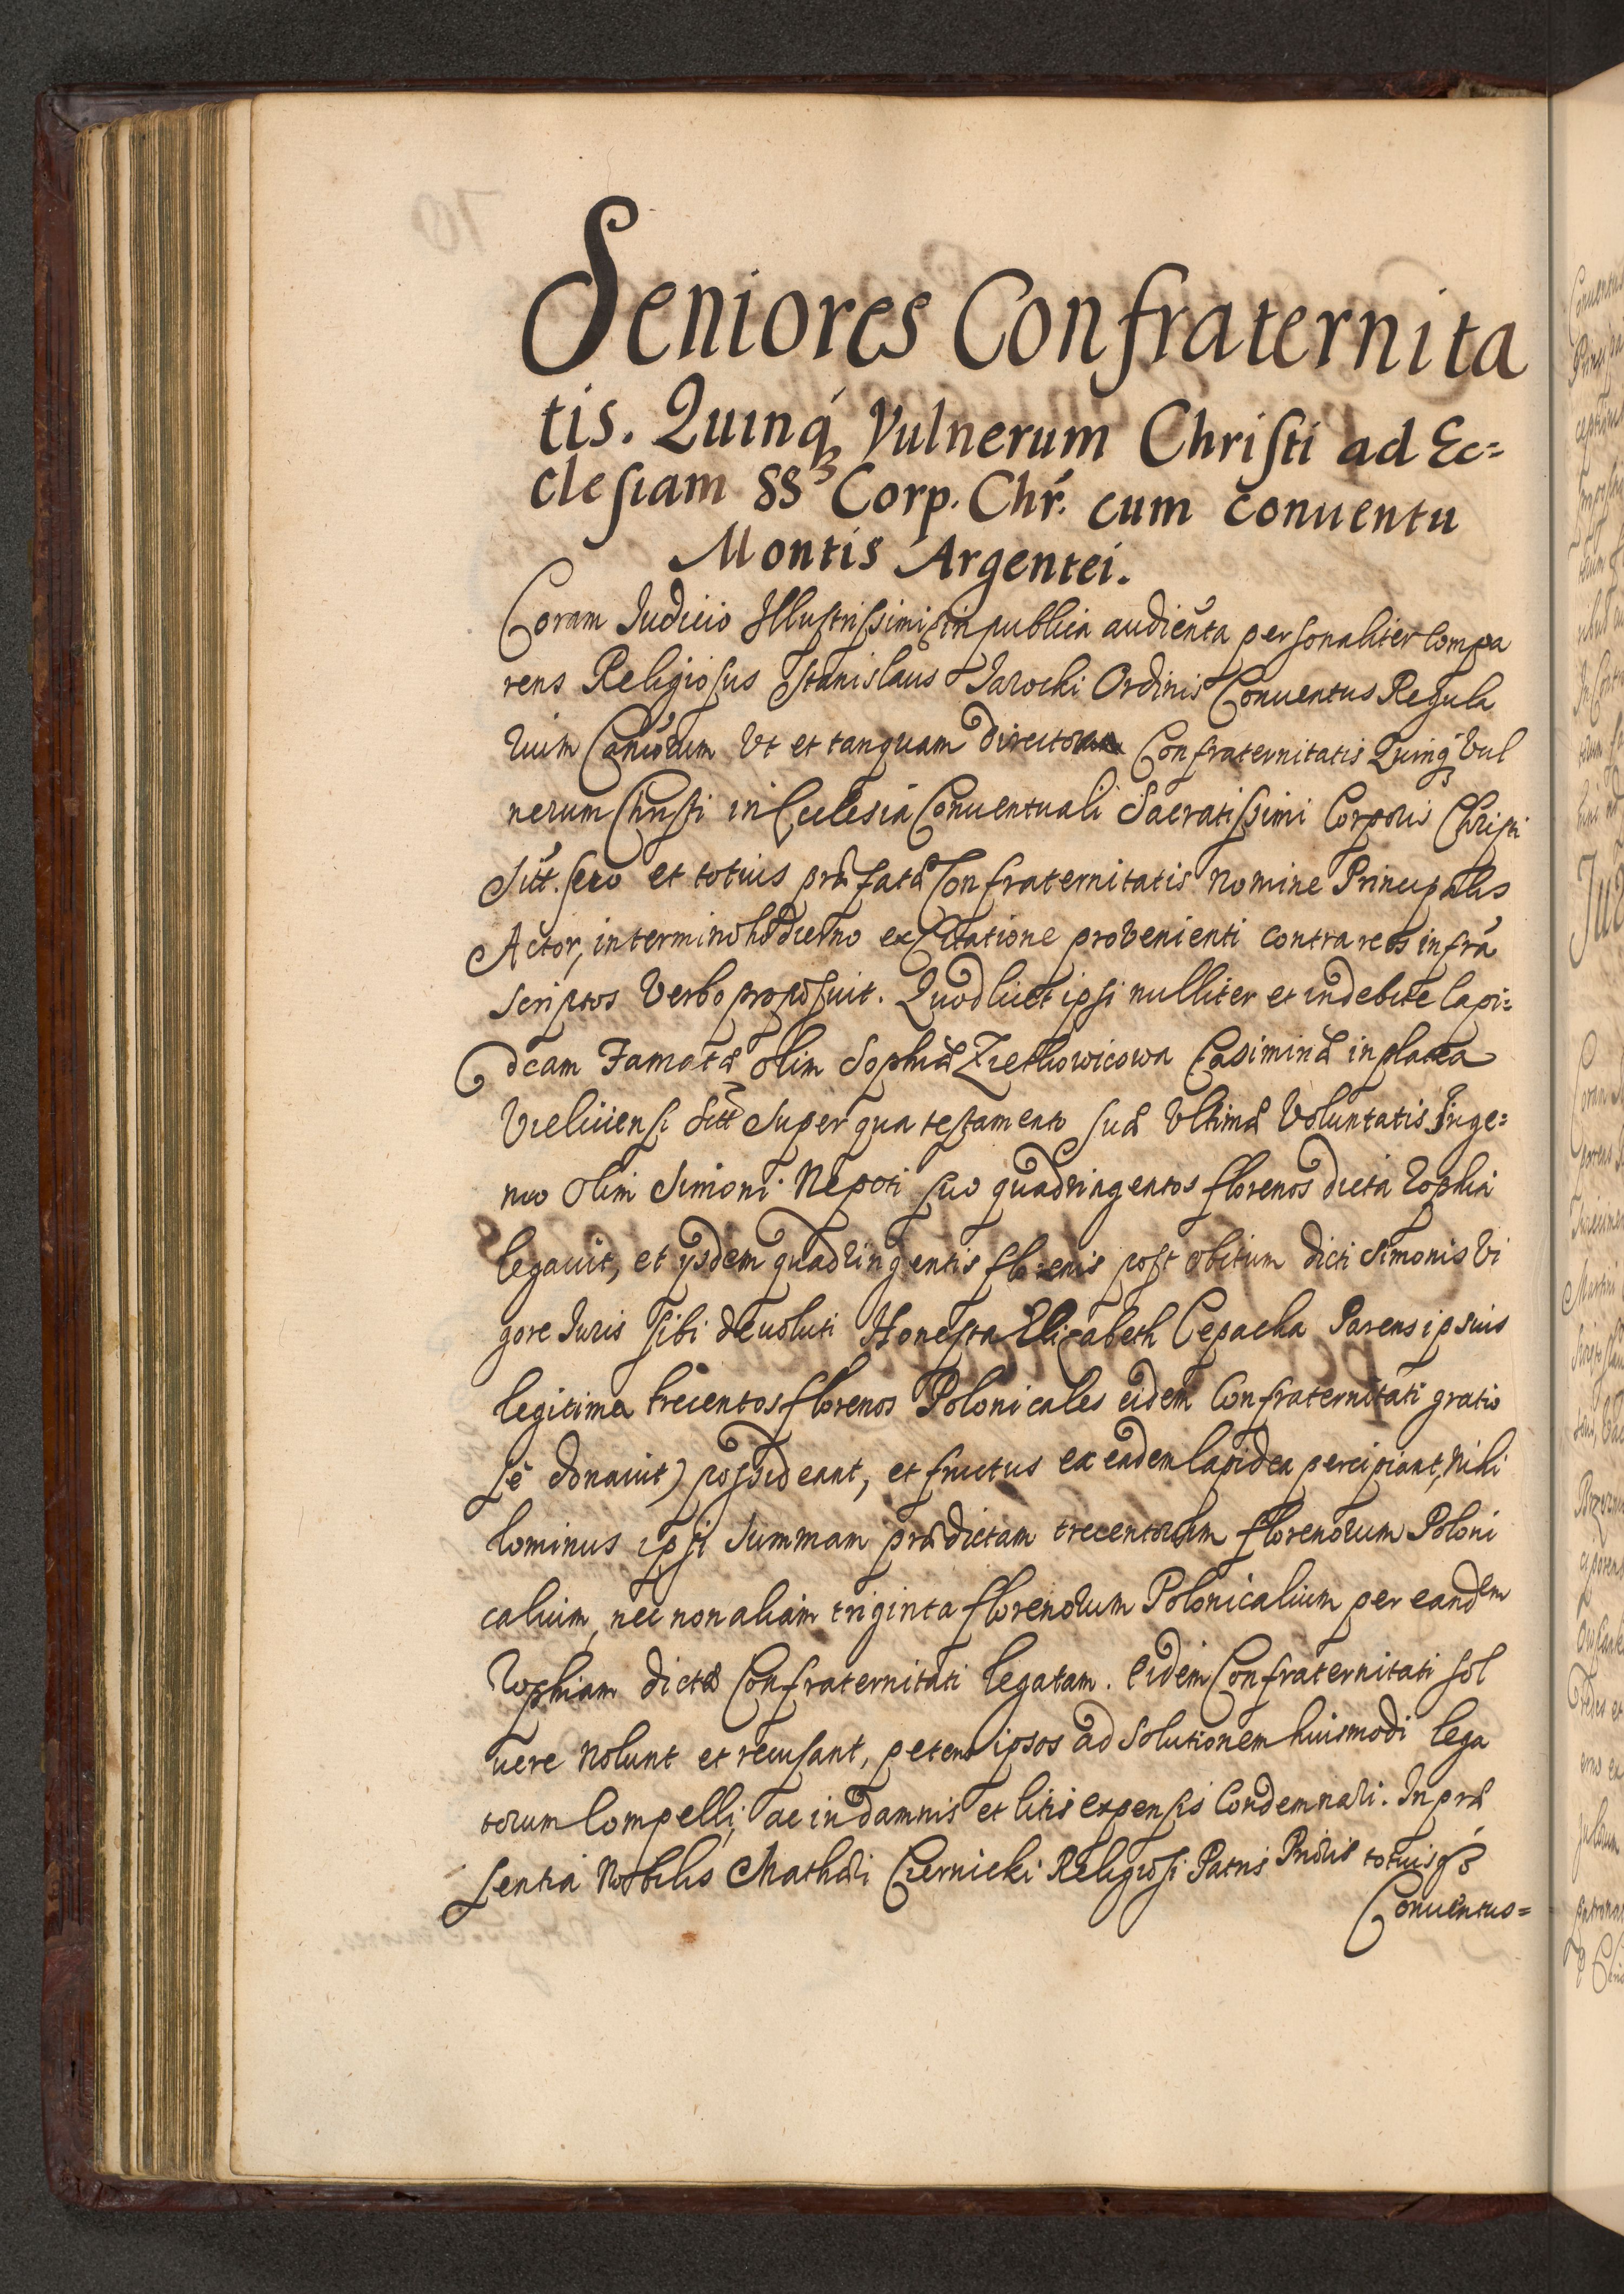 Seniores Confraternita
tis. Quinq́ꝫ Vulnerum Chriſti ad Ec=
cleſiam SS Corp. Chŕ. cum conuentu
Montis Argentei.
Coram Judicio Illuſtriſsimi in publica audiẽta perſonaliter compa
rens Religioſus Stanislaus Jarocki Ordinis Conuentus Regula
rium Canõrum Vt et tanquam director Confraternitatis Quinq́ꝫ Vul
nerum Chriſti in Eccleſia Conuentuali Sacratiſsimi Corporis Chriſti
Sũt. ſuo et totius præfatæ Confraternitatis nomine Principalis
Actor, in termino hodierno ex Citatione provenienti contra reos infrá
scriptos Verbo propoſuit. Quod licet ipſi nulliter et indebite lapi=
deam Famatæ olim Sophiæ Zietkowicowa Casimiriæ in platea
Vieliciensi Sitt Super qua testamento ſuæ Vltimæ Voluntatis Inge=
nuo olim Simoni Nepoti ſuo quadringentos florenos dicta Zophia
legauit, et ysdem quadringentis florenis poſt obitum dicti Simonis Vi
gore Juris ſibi deuoluti Honeſta Elizabeth Cepacka Parens ipsius
legitima trecentos florenos Polonicales eidem Confraternitati gratio
ſe donauit) poſsideant, et fructus ex eadem lapidea percipiant, nihi
lominus ipſi Summam prædictam trecentorum florenorum Poloni
calium, nec non aliam triginta florenorum Polonicalium per eandem
Zophiam dictæ Confraternitati legatam. Eidem Confraternitati ſol
uere nolunt et recuſant, petens ipsos ad Solutionem huismodi lega
torum Compelli, ac in damnis et litis expenſis Condemnari. In præ
ſentia Nobilis Mathæi Czernicki Religioſi Patris Pridis totuisqꝫ
Conuentus=